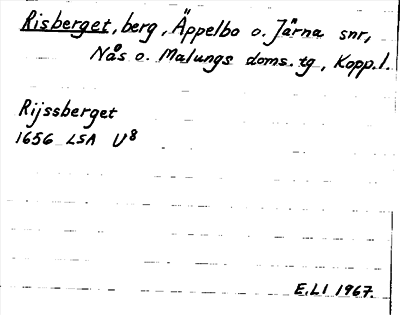 Risberget, berg, Äppelbo o. Järna snr,
Nås o. Malungs doms. tg, Kopp. l.
Rijssberget
1656 LSA U8
E.LI 1967.